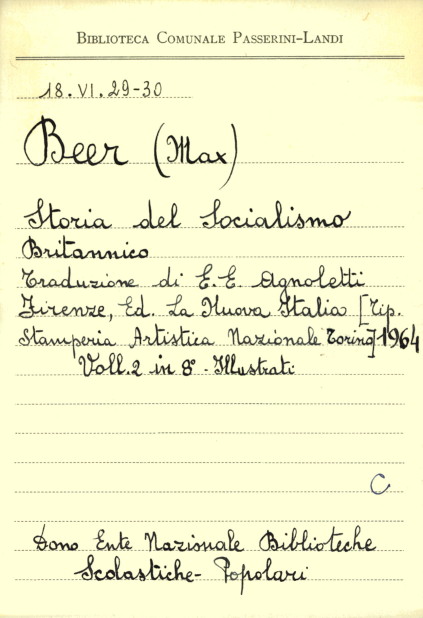 BIBLIOTECA COMUNALE PASSERINI-LANDI
18.VI.29-30
Beer (Max)
Storia del Socialismo
Britannico
Traduzione di E.E. Agnoletti
Firenze, Ed. La Nuova Italia [Tip.
Stamperia Artistica Nazionale Torino] 1964
Voll.2 in 8° - Illustrati
C
Dono Ente Nazionale Biblioteche
Scolastiche - Popolari